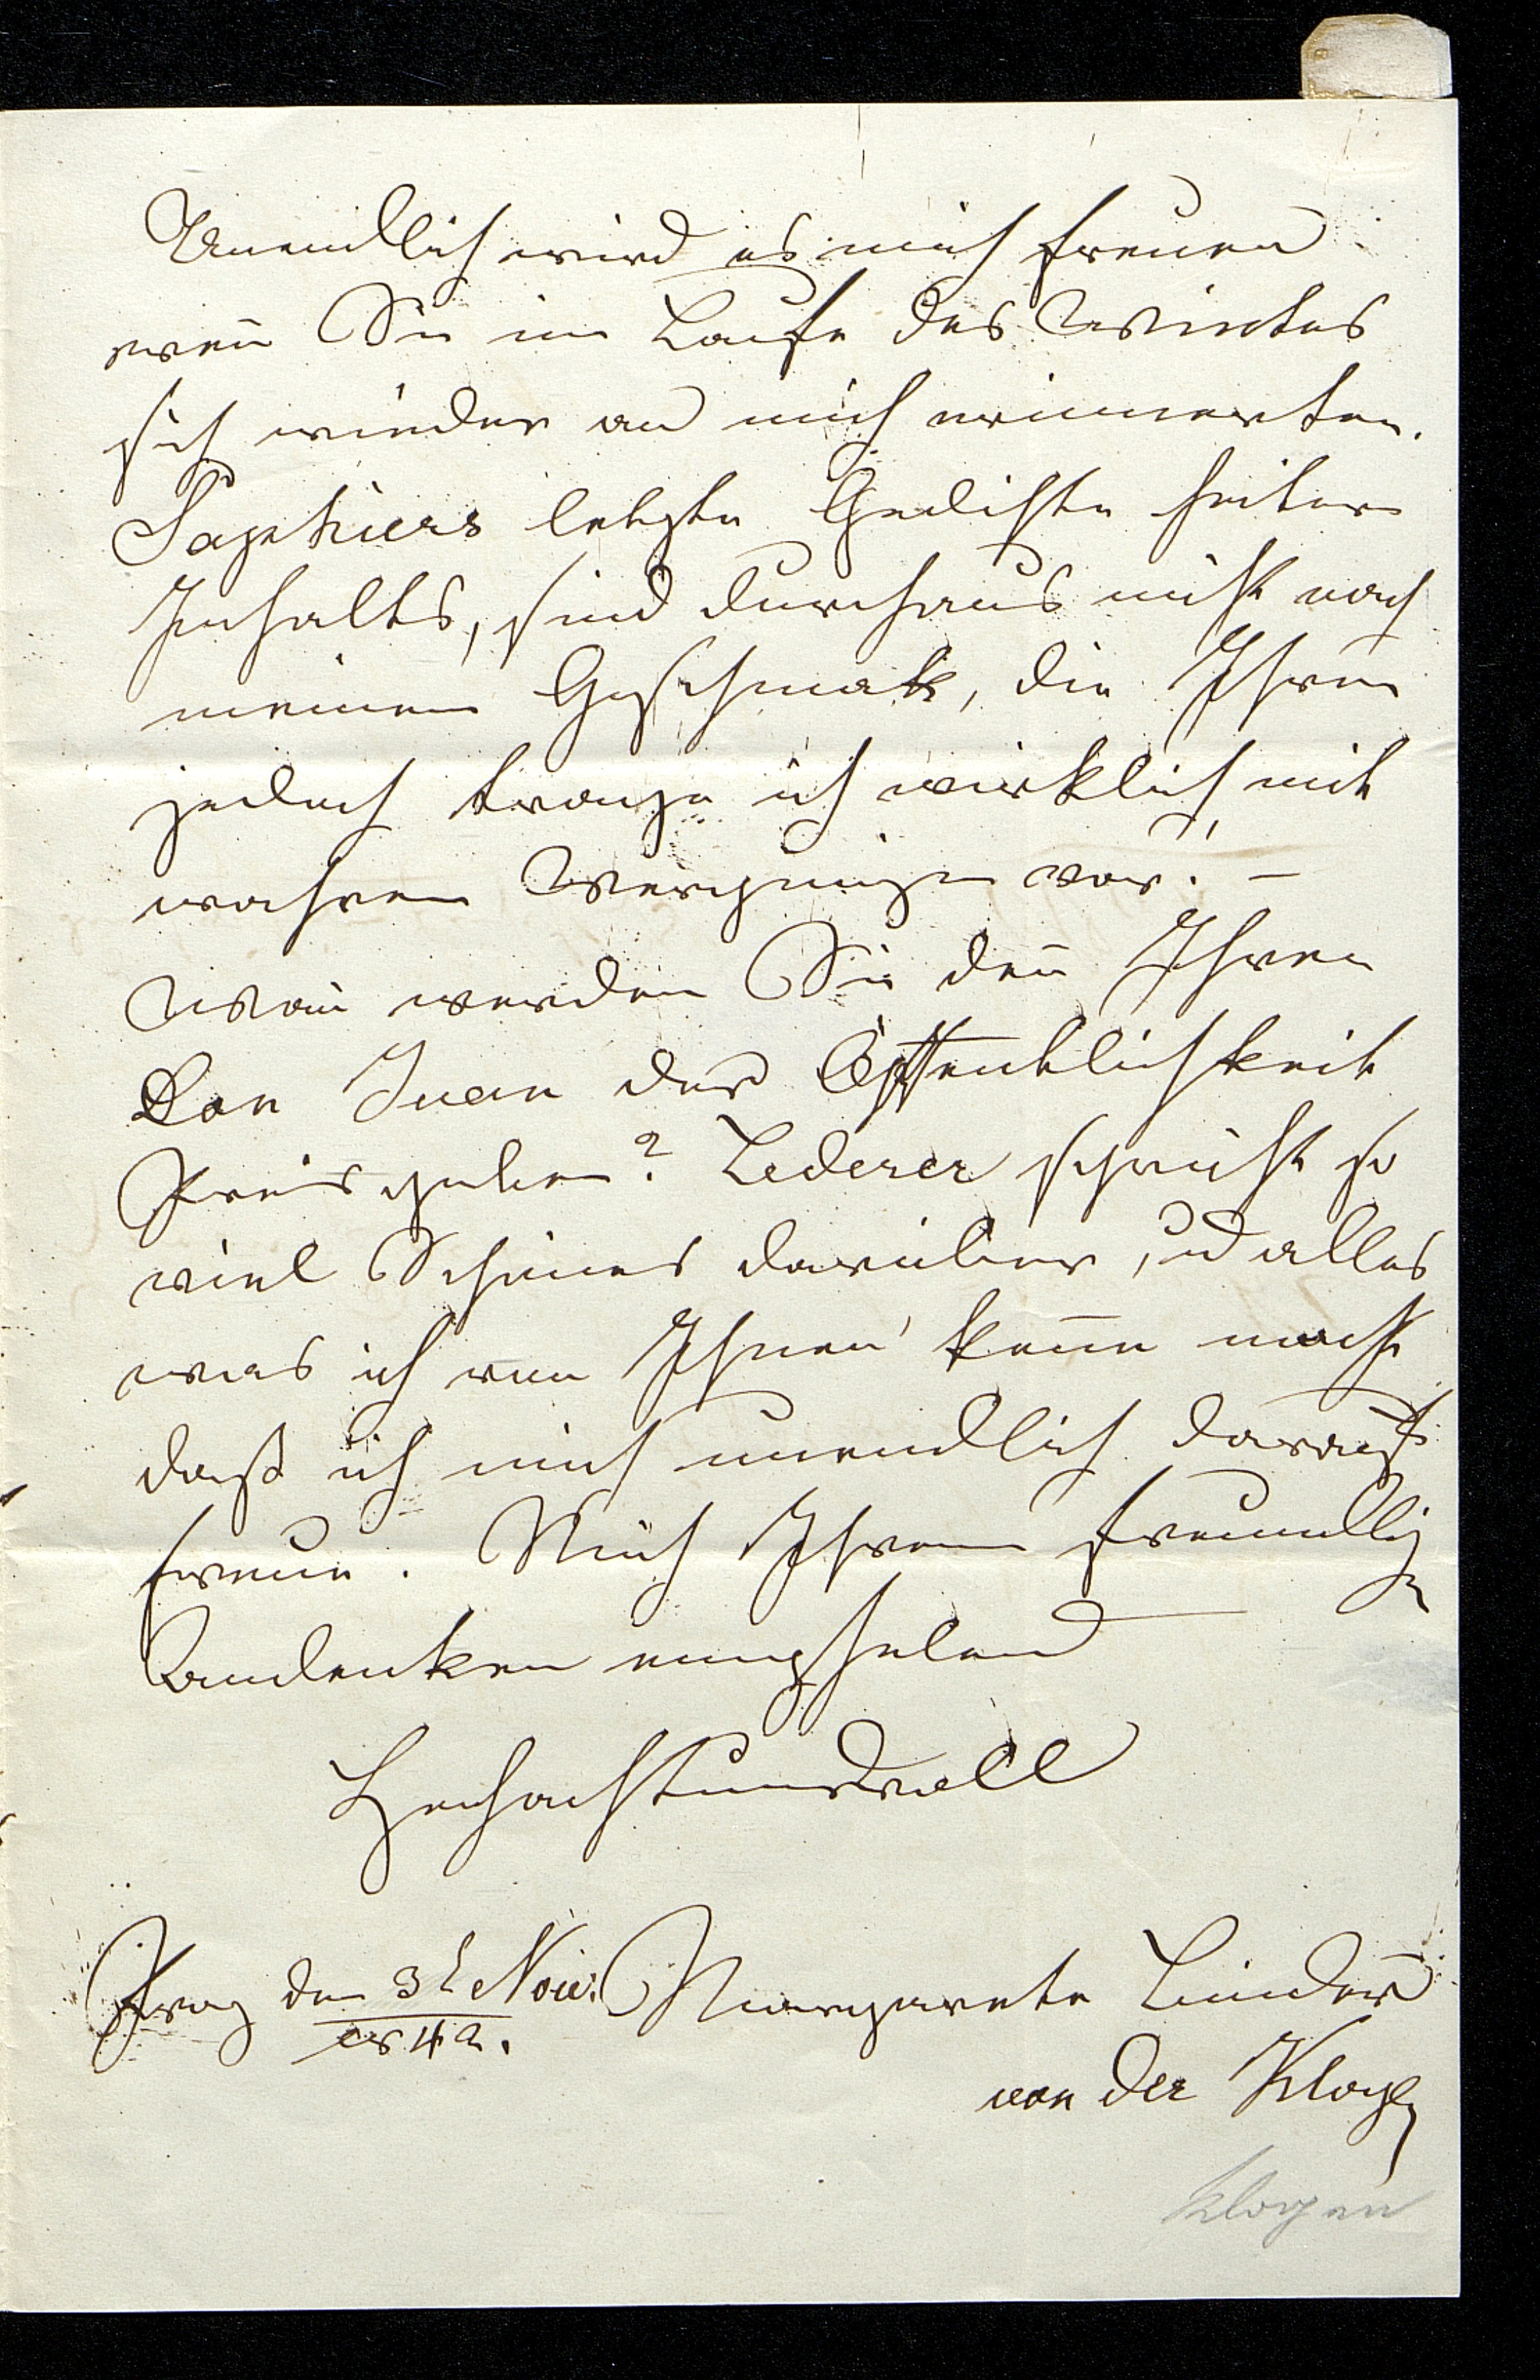 Unendlich wird es mich freuen
weñ Sie im Laufe des Winters
sich wieder an mich erinnerten.
Saphiers letzte Gedichte heitern
Inhalts, sind durchaus nicht nach
meinem Geschmak, die Ihren
jedoch trage ich wirklich mit
wahrem Vergnügen vor! –
Wañ werden Sie deñ Ihren
Don Juan der Öffentlichkeit
Preis geben? Lederer spricht so
viel Schönes darüber, ud alles
was ich von Ihnen kenne macht
daß ich mich unendlich darauf
freue. Mich Ihrem freundlig
Andenken empfelend
Hochachtungsvoll
Prag den 3t Nov. Margarete Binder
1842.
von der Klogen
Klogen